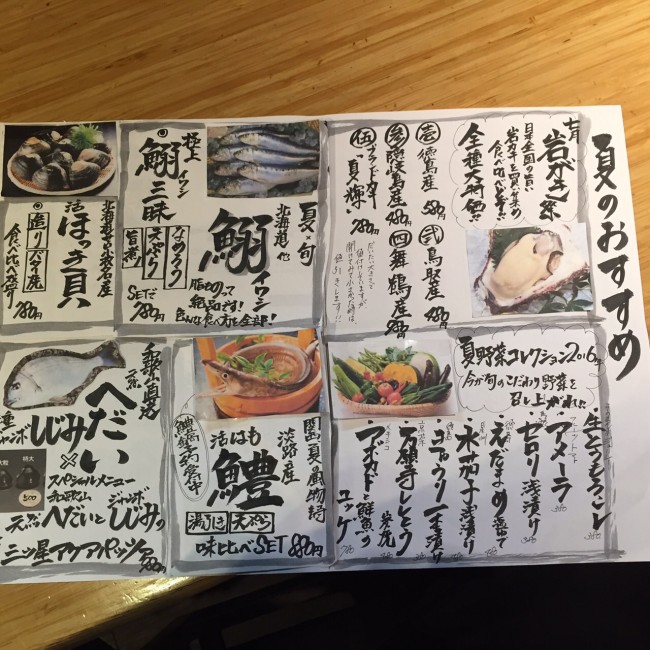 夏のおすすめ
七月
岩がき祭
日本全国の旨い
岩ガキを買い集め
食べ比べる事が
全種大特価!!
壱 徳島産
弐 鳥取産
参 徳島産
四 舞鶴産
伍 ブランドカキ
「夏輝」
780円
だいたい大きさで
値付けしていますが
開けてみて小さめな時は、
値引きします!!
夏の旬
北海道 他
鰯
イワシ
脂ものって
絶品です!
色んな食べ方も全部!
極上
鰯三昧
イワシ
なめろう
天ぷら
旨煮
SETで
780円
活ほっき貝
造り
バター焼
食べ比べ盛り
780円
夏野菜コレクション2016
今が旬のこだわり野菜を
召し上がれ
生とうもろこし
アメーラ
セロリ浅漬け
えだまめ
水茄子浅漬け
万願寺ししとう
アボカドと鮮魚の
ユッケ
関西夏の風物詩
淡路産
活はも
鱧
鱧鍋予約受付中
湯引き
天ぷら
味比べSET 880円
和歌山直送
天然
へだい
×
しじみ
特大
500
スペシャルメニュー
和歌山
天然へだいとジャンボしじみの
三ツ星アクアパッツァ